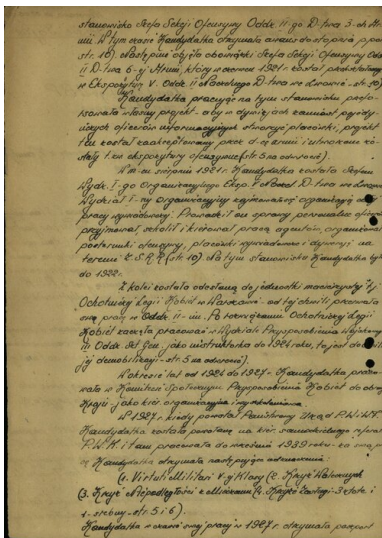 stanowisko Szefa Sekcji Ofensywy Oddz. II-go D-twa 3-ch Ar-
mii W tym czasie Kandydatka otrzymała awans do stopnia ppor
str. 10). Następnie objęła obowiązki Szefa Sekcji Ofensywy Od
II D-twa 6-ej Armii, który z czerwca 1921 r. został przekształcony
w Ekspozyturę V. Oddz. II Naczelnego D-twa we Lwowie - str. 10).
Kandydatka pracując na tym stanowisku
własny projekt - aby w dywizjach zamiast
oficerów informacyjnych stworzyć placówki, projekt
ten został zaakceptowany przez d-cę armii i utworzone zo-
stały t.zw. ekspozytury ofensywne (str. 5 na odwrocie).
W m-cu sierpniu 1921 r. Kandydatka została Szefem
Wydz. I-go Organizacyjnego Eksp. V Naczel D-twa we Lwowie
Wydział I-ny Organizacyjny zajmował się organizacją
pracy wywiadowczej. Prowadził on sprawy personalne
przyjmował, szkolił i kierował pracą agentów, organizował
posterunki ofensywy, placówki wywiadowcze i dywersji na
terenie Z.S.R.R (str 10). Na tym stanowisku Kandydatka była
do 1922 r.
Z kolei została odesłana do jednostki macierzystej tj.
Ochotniczej Legii Kobiet w Warszawie - od tej chwili przerwała
swą pracę w Oddz. II-im. Po rozwiązaniu Ochotniczej Legii
Kobiet zaczęła pracować w Wydziale Przysposobienia Wojskowego
III Oddz. Szt Gen. jako instruktorka do 1924 roku, to jest do
jej demobilizacji - str. 5 na odwrocie).
W okresie lat od 1924 do 1927 - Kandydatka praco-
wała w Komitecie Społecznym Przysposobienia Kobiet do obrony
Kraju - jako kier. organizacyjna i wyszkoleniowa
W 1927 r. kiedy powstał Państwowy Urząd P.W. i W.F.
Kandydatka została powołana na kier. samodzielnego referatu
P.W.K i tam pracowała do września 1939 roku - za swą
cę Kandydatka otrzymała następujące odznaczenia:
1. Virtuti Militari V-ej Klasy (2. Krzyż Walecznych
(3. Krzyż Niepodległości z Mieczami (4. Krzyże Zasługi - 3 złote i
1 - srebrny - str. 5 i 6).
Kandydatka w czasie swej pracy w 1927 r. otrzymała paszport